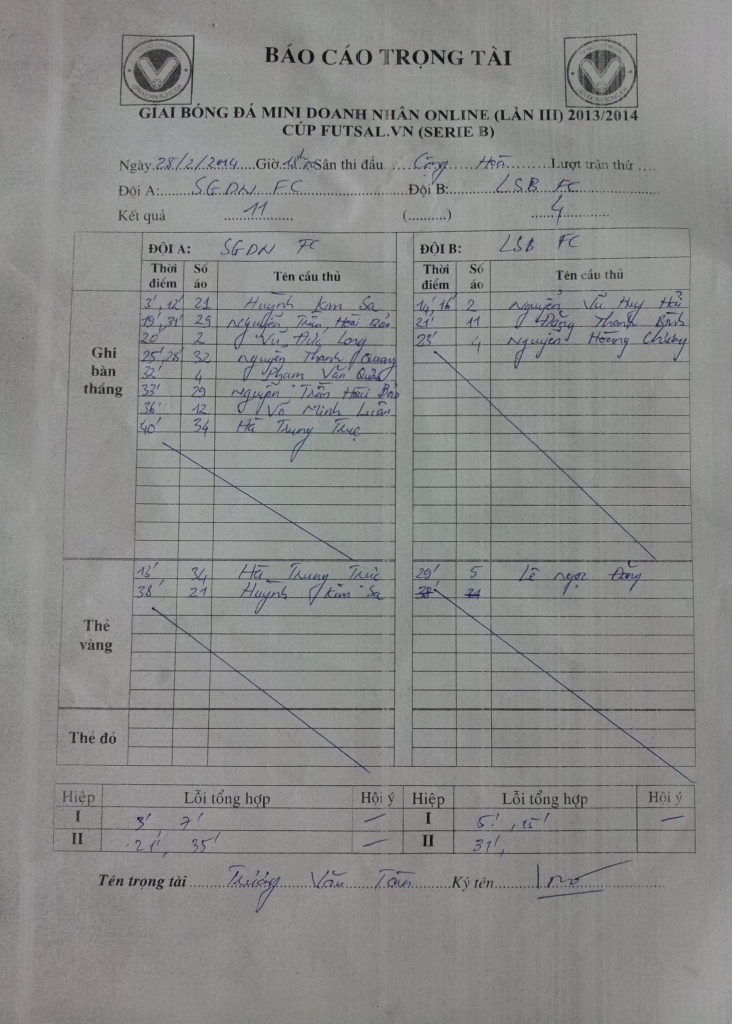 BÁO CÁO TRỌNG TÀI
GIẢI BÓNG ĐÁ MINI DOANH NHÂN ONLINE (LẦN III) 2013/2014
CÚP FUTSAL.VN (SERIE B)
Ngày 28/2/2014 Giờ Sân thi đấu Cộng Hòa Lượt trận thứ
Đội A: SGDN FC Đội B: LSB FC
Kết quả 11 (..........) 4
ĐỘI A: SGDN FC ĐỘI B: LSB FC
Thời điểm Số áo Tên cầu thủ Thời điểm Số áo Tên cầu thủ
Ghi bàn thắng
3', 12' 21 Huỳnh Kim Sa 14', 16' 2 Nguyễn Vũ Huy
19', 31' 29 Nguyễn Trần Hoài Bảo 21' 11 Đặng Thanh Bình
20' 2 Vũ Đức Long 23' 4 Nguyễn Hoàng Chương
25', 28' 32 Nguyễn Thanh Quang
32' 4 Phạm Văn Quân
33' 29 Nguyễn Trần Hoài Bảo
36' 12 Võ Minh Luân
40' 34 Hà Trung Trực
Thẻ vàng
13' 34 Hà Trung Trực 29' 5 Lê Ngọc Đăng
38' 21 Huỳnh Kim Sa 38' 21
Thẻ đỏ
Hiệp Lỗi tổng hợp Hội ý Hiệp Lỗi tổng hợp Hội ý
I 3' 7' — I 5', 15' —
II 21', 35' — II 31',
Tên trọng tài Trương Văn Ký tên